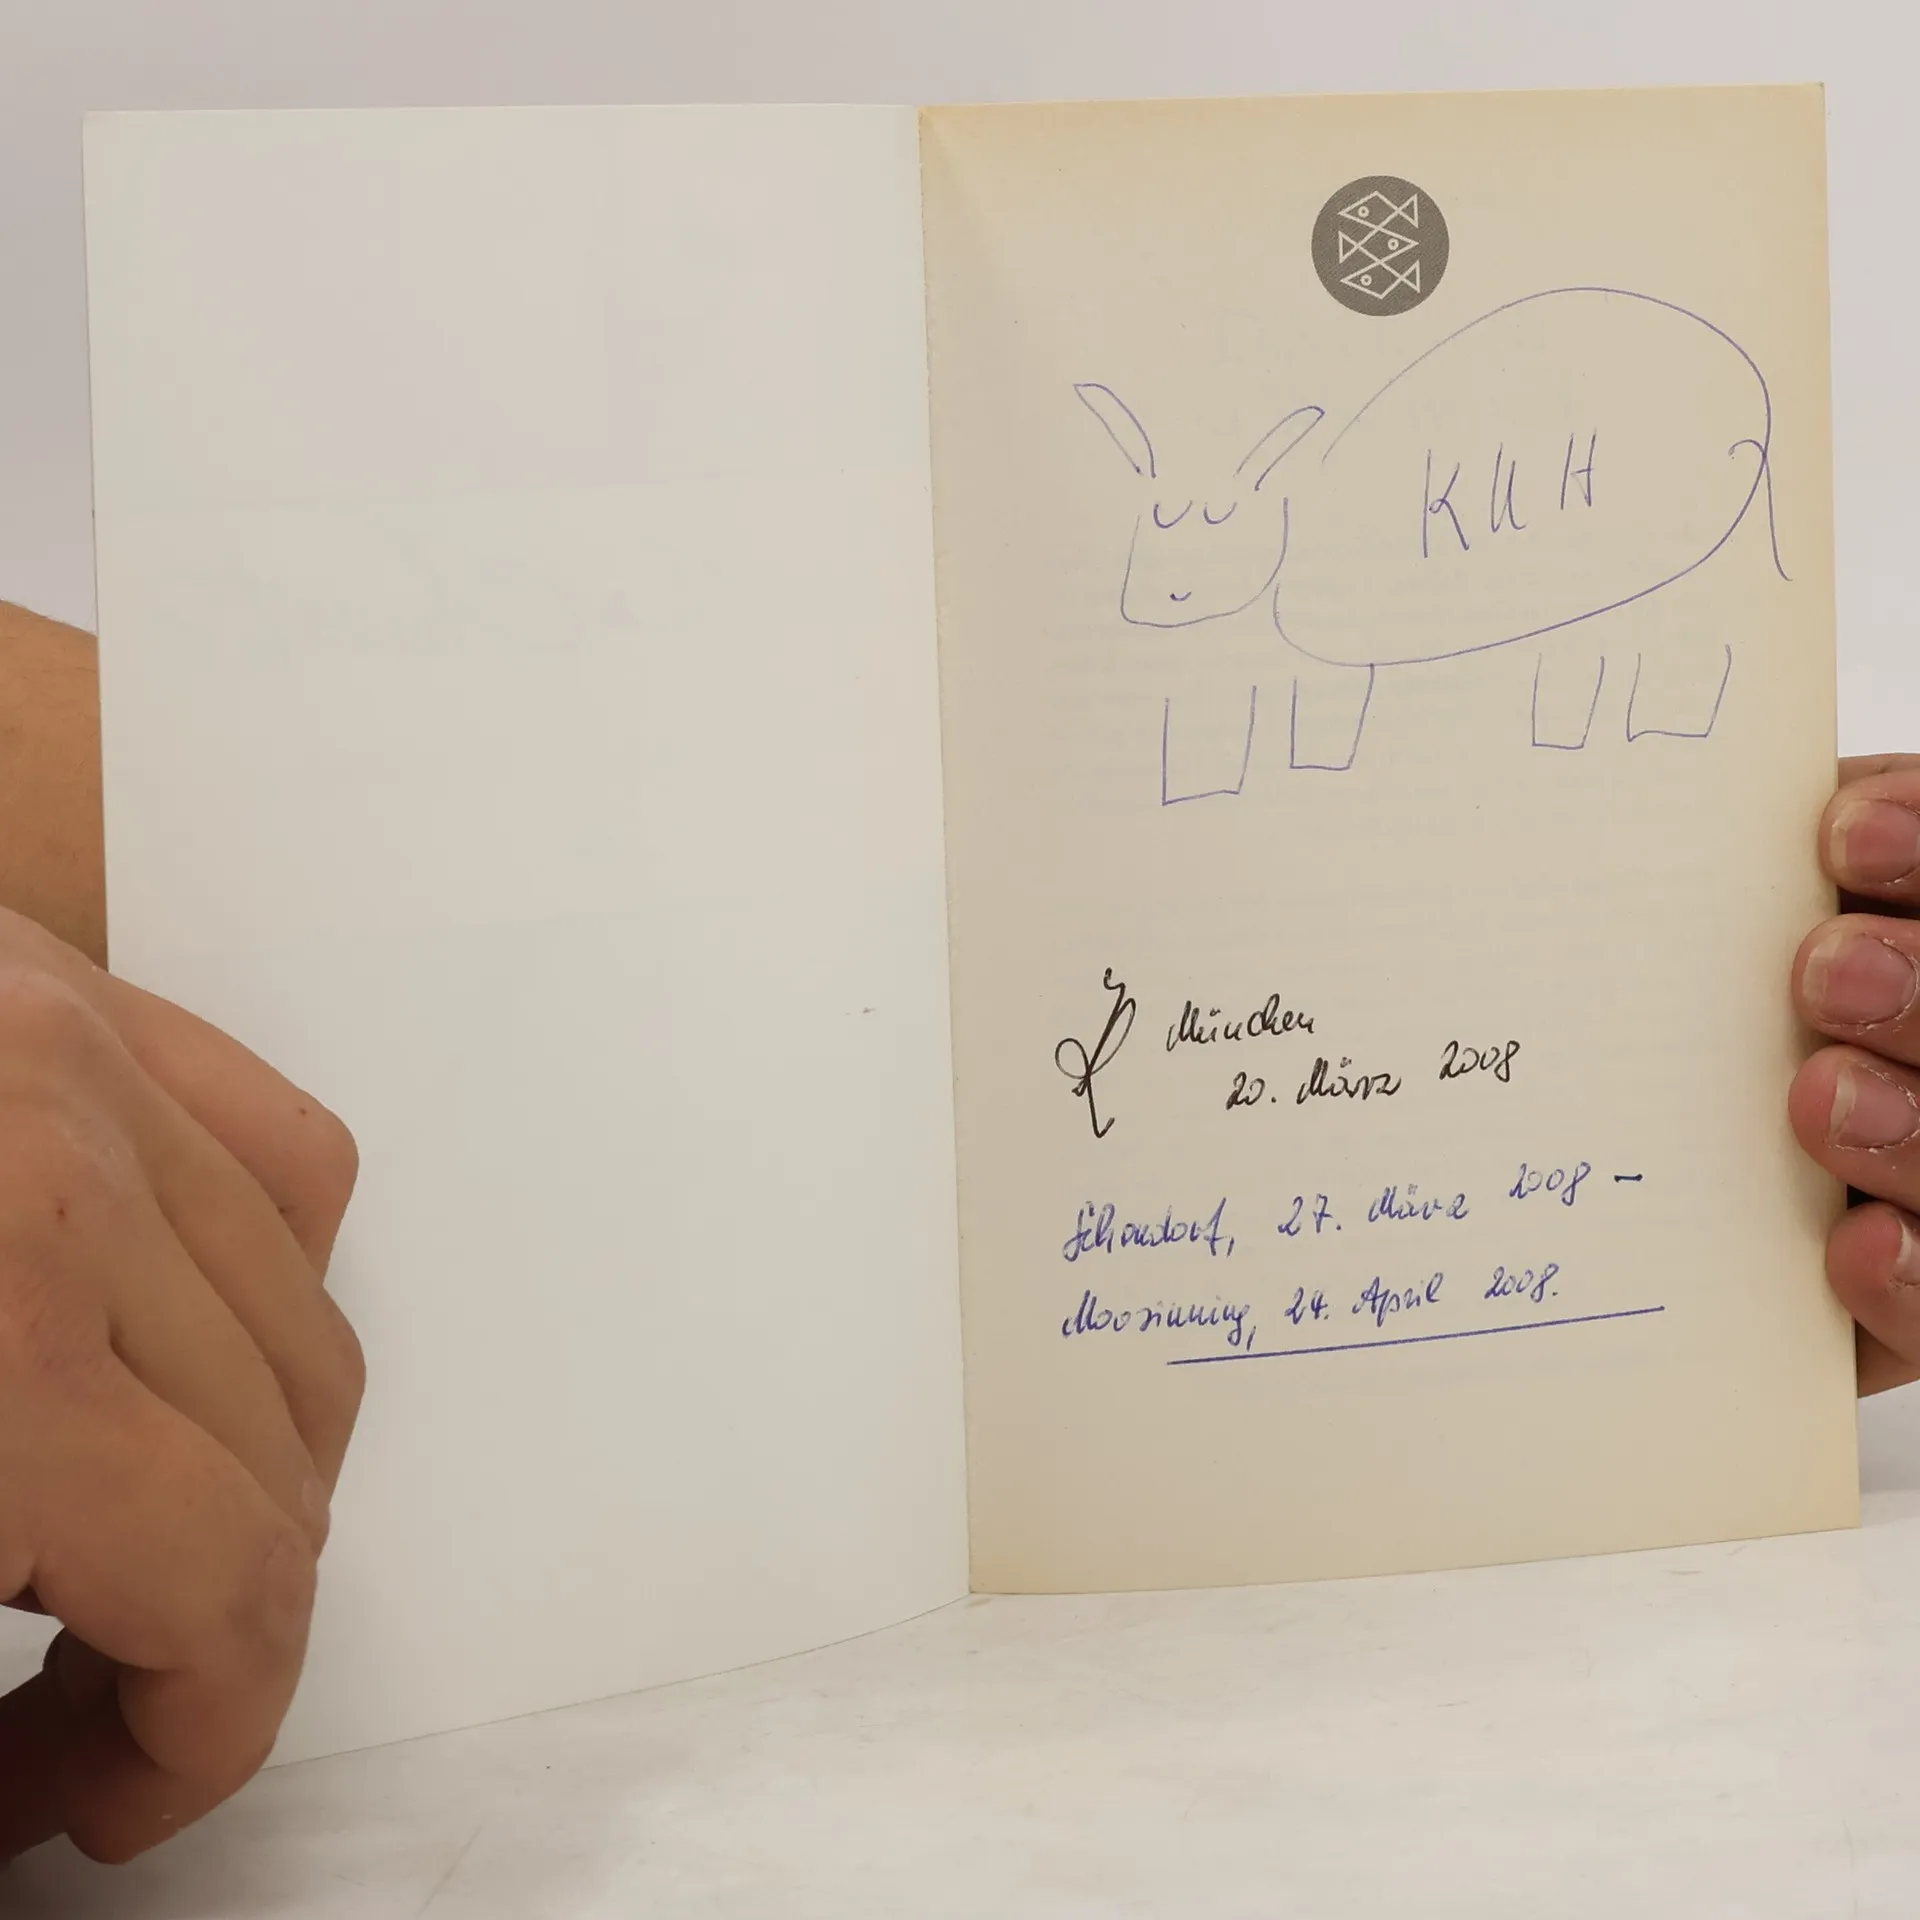 KUH
München
20. März 2008
Schondorf, 27. März 2008 –
Moosinning, 24. April 2008.